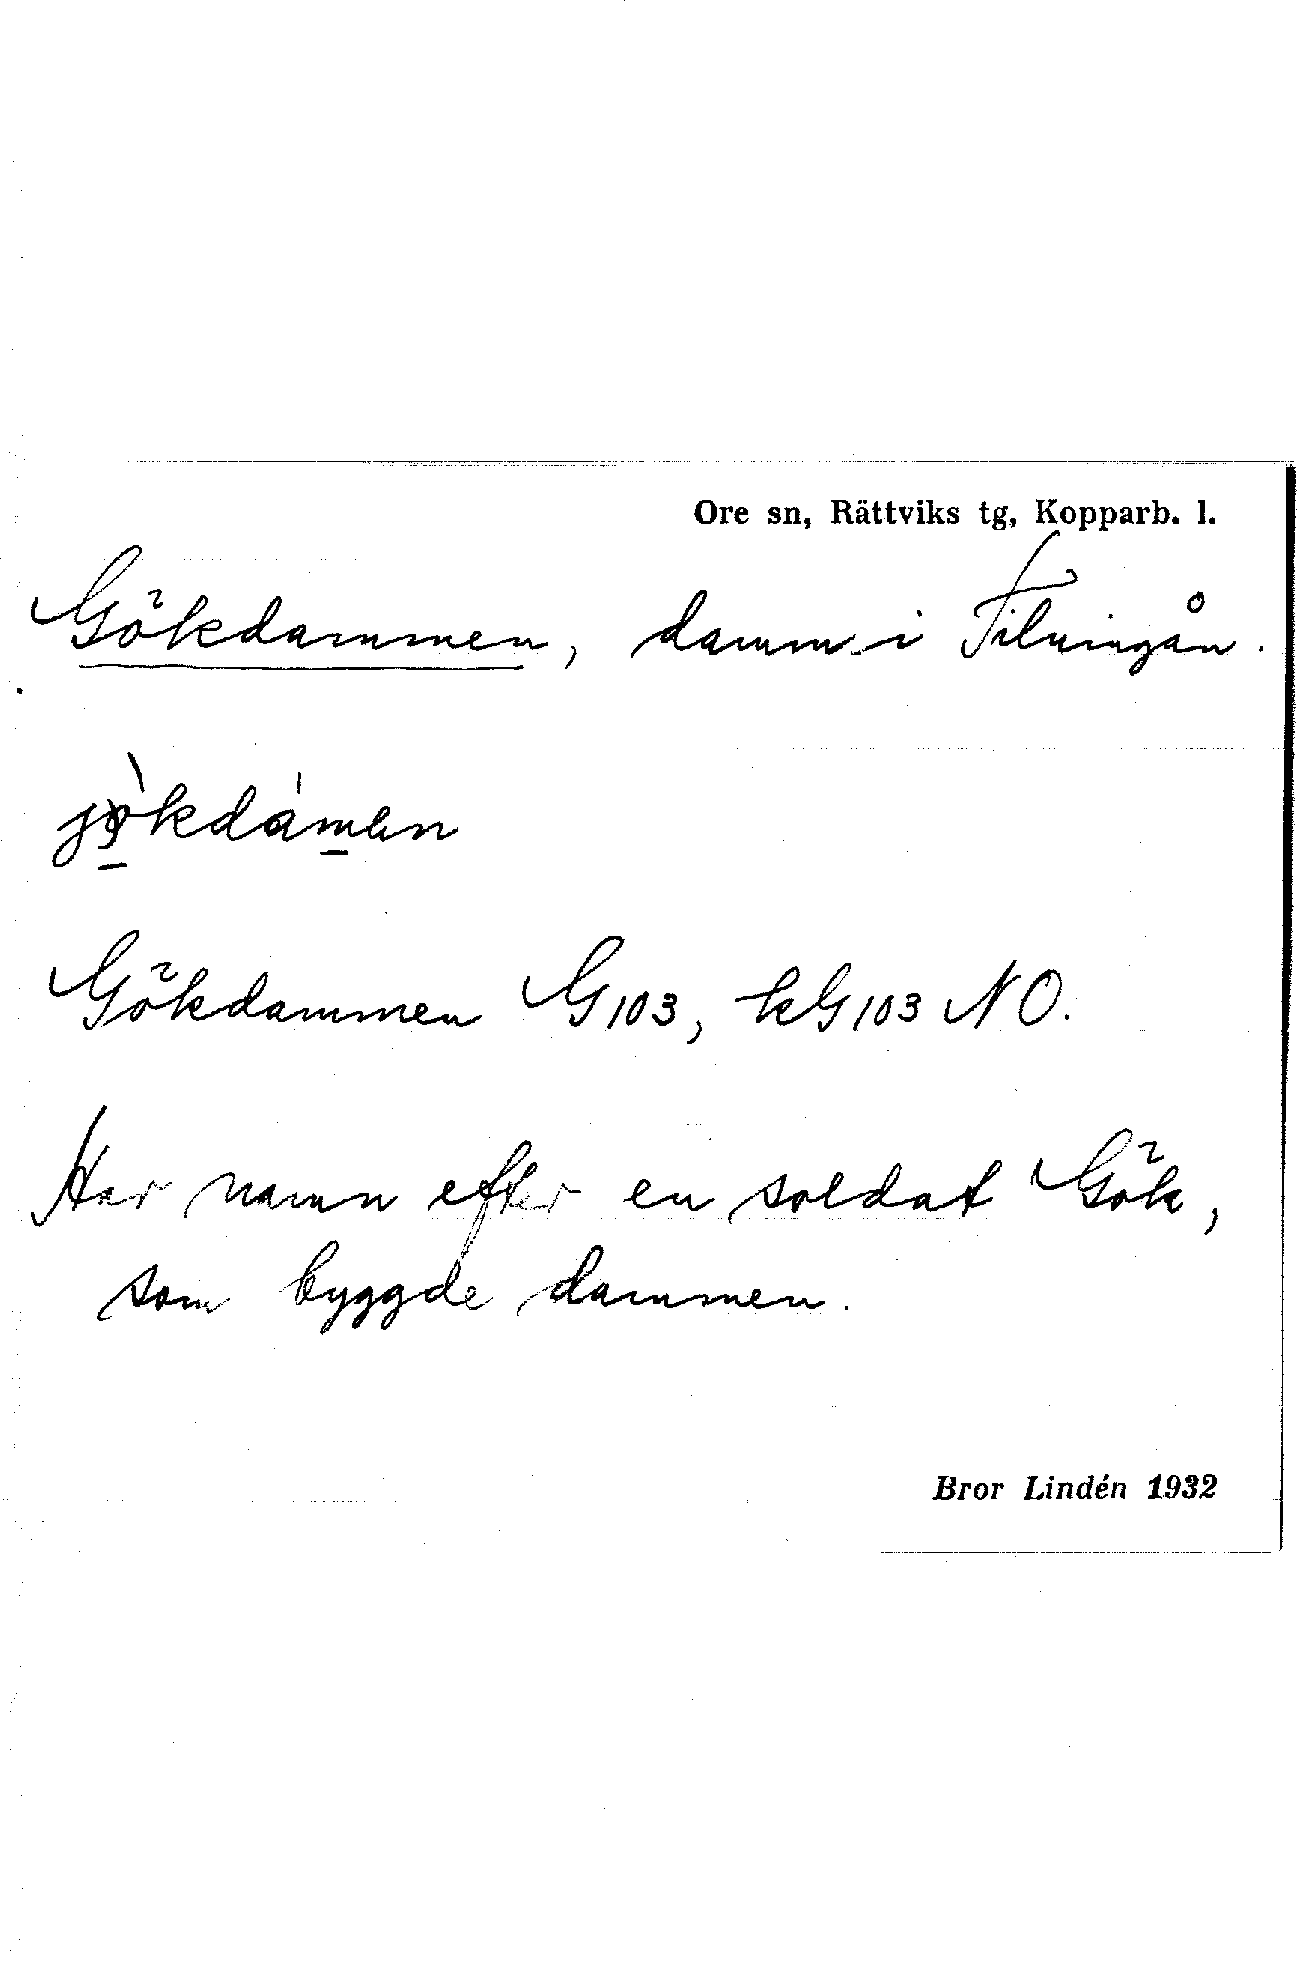 Ore sn, Rättviks tg, Kopparb. l.
Gökdammen, damm i Filningån.
Gökdammen G103, kG103 NO.
Har namn efter en soldat Gök,
som byggde dammen.
Bror Lindén 1932